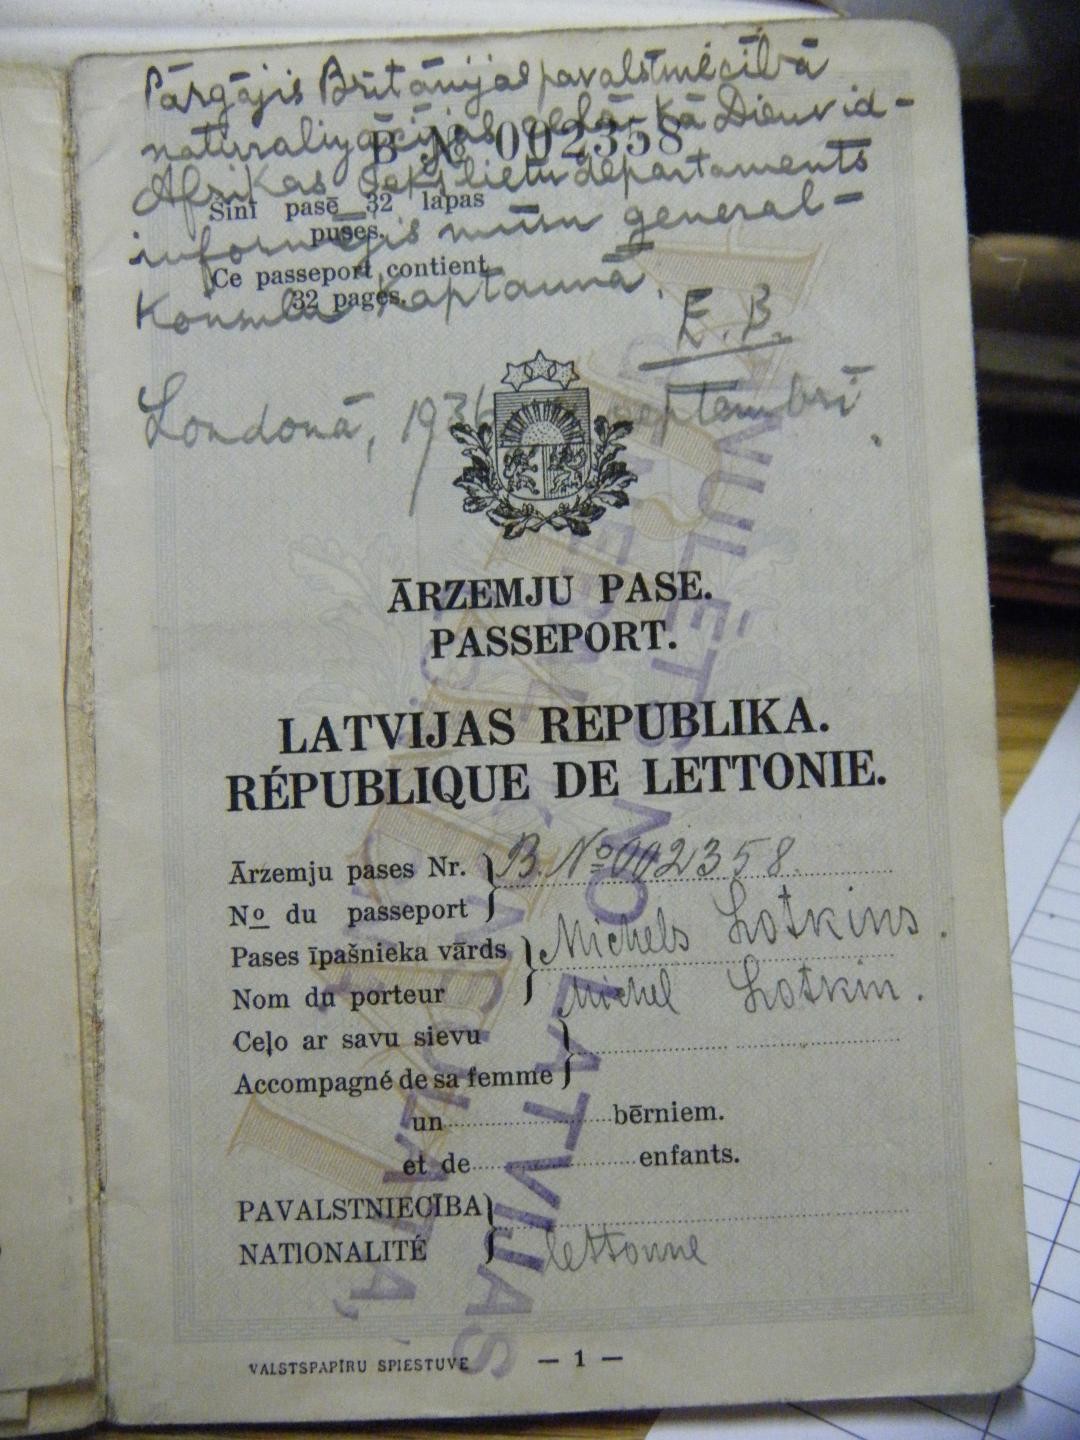 Pārgājis Britānijas pavalstniecībā
naturalizācijas ceļā, kā Dienvid-
B № 002358
Afrikas Iekšlietu departaments
Šinī pasē 32 lapas
puses.
informējis mūsu general-
Ce passeport contient
32 pages.
Konsulu Kaptaunā.
E. B.
Londonā, 1936 septembrī.
ĀRZEMJU PASE.
PASSEPORT.
LATVIJAS REPUBLIKA.
RÉPUBLIQUE DE LETTONIE.
Ārzemju pases Nr. B. № 002358.
Nº du passeport
Pases īpašnieka vārds Michels Lotkins.
Nom du porteur Michel Lotkin.
Ceļo ar savu sievu
Accompagné de sa femme
un bērniem.
et de enfants.
PAVALSTNIECĪBA
NATIONALITÉ lettonne
VALSTSPAPĪRU SPIESTUVE — 1 —
ANULĒTS NO LATVIJAS